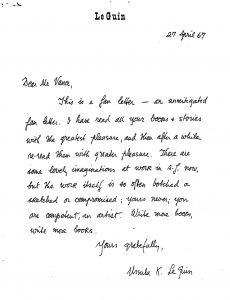 Le Guin
27 April 67
Dear Mr Vance,
This is a fan letter — an unmitigated
fan letter. I have read all your books & stories
with the greatest pleasure, and then after a while
re-read them with greater pleasure. There are
some lovely imaginations at work in s.f. now,
but the work itself is so often botched or
sketched or compromised; yours never; you
are competent, an artist. Write more books,
write more books.
Yours gratefully,
Ursula K. Le Guin